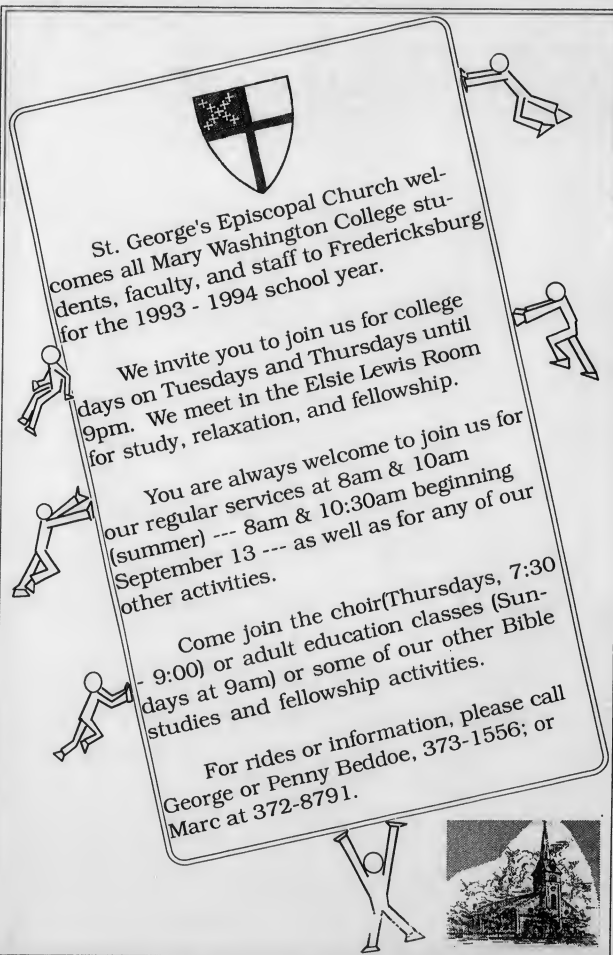 St. George's Episcopal Church wel-
comes all Mary Washington College stu-
dents, faculty, and staff to Fredericksburg
for the 1993 - 1994 school year.
We invite you to join us for college
days on Tuesdays and Thursdays until
9pm. We meet in the Elsie Lewis Room
for study, relaxation, and fellowship.
You are always welcome to join us for
our regular services at 8am & 10am
(summer) --- 8am & 10:30am beginning
September 13 --- as well as for any of our
other activities.
Come join the choir(Thursdays, 7:30
- 9:00) or adult education classes (Sun-
days at 9am) or some of our other Bible
studies and fellowship activities.
For rides or information, please call
George or Penny Beddoe, 373-1556; or
Marc at 372-8791.